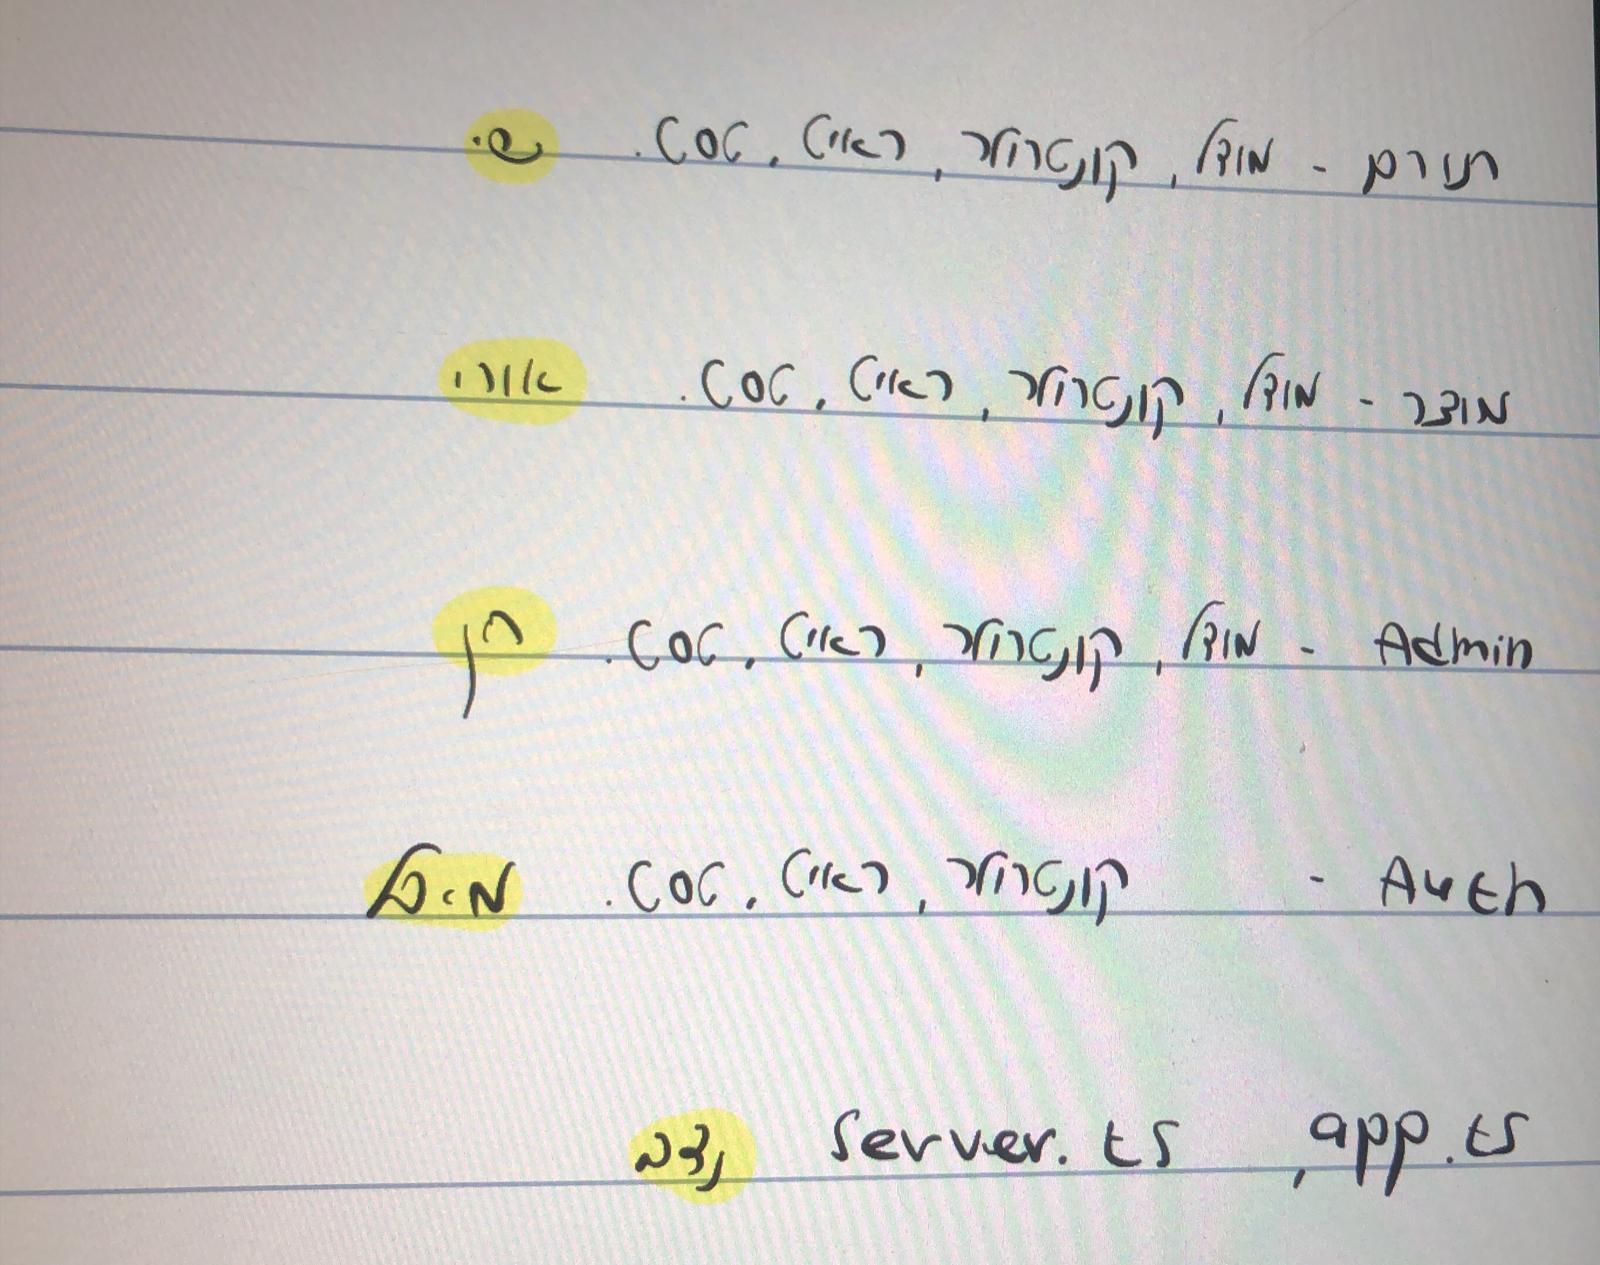 תורם - מודל, קונטרולר, ראוט, טסט. שי
מוצר - מודל, קונטרולר, ראוט, טסט. אורי
Admin - מודל, קונטרולר, ראוט, טסט. חן
Auth - קונטרולר, ראוט, טסט. מיכל
app.ts, server.ts נדב